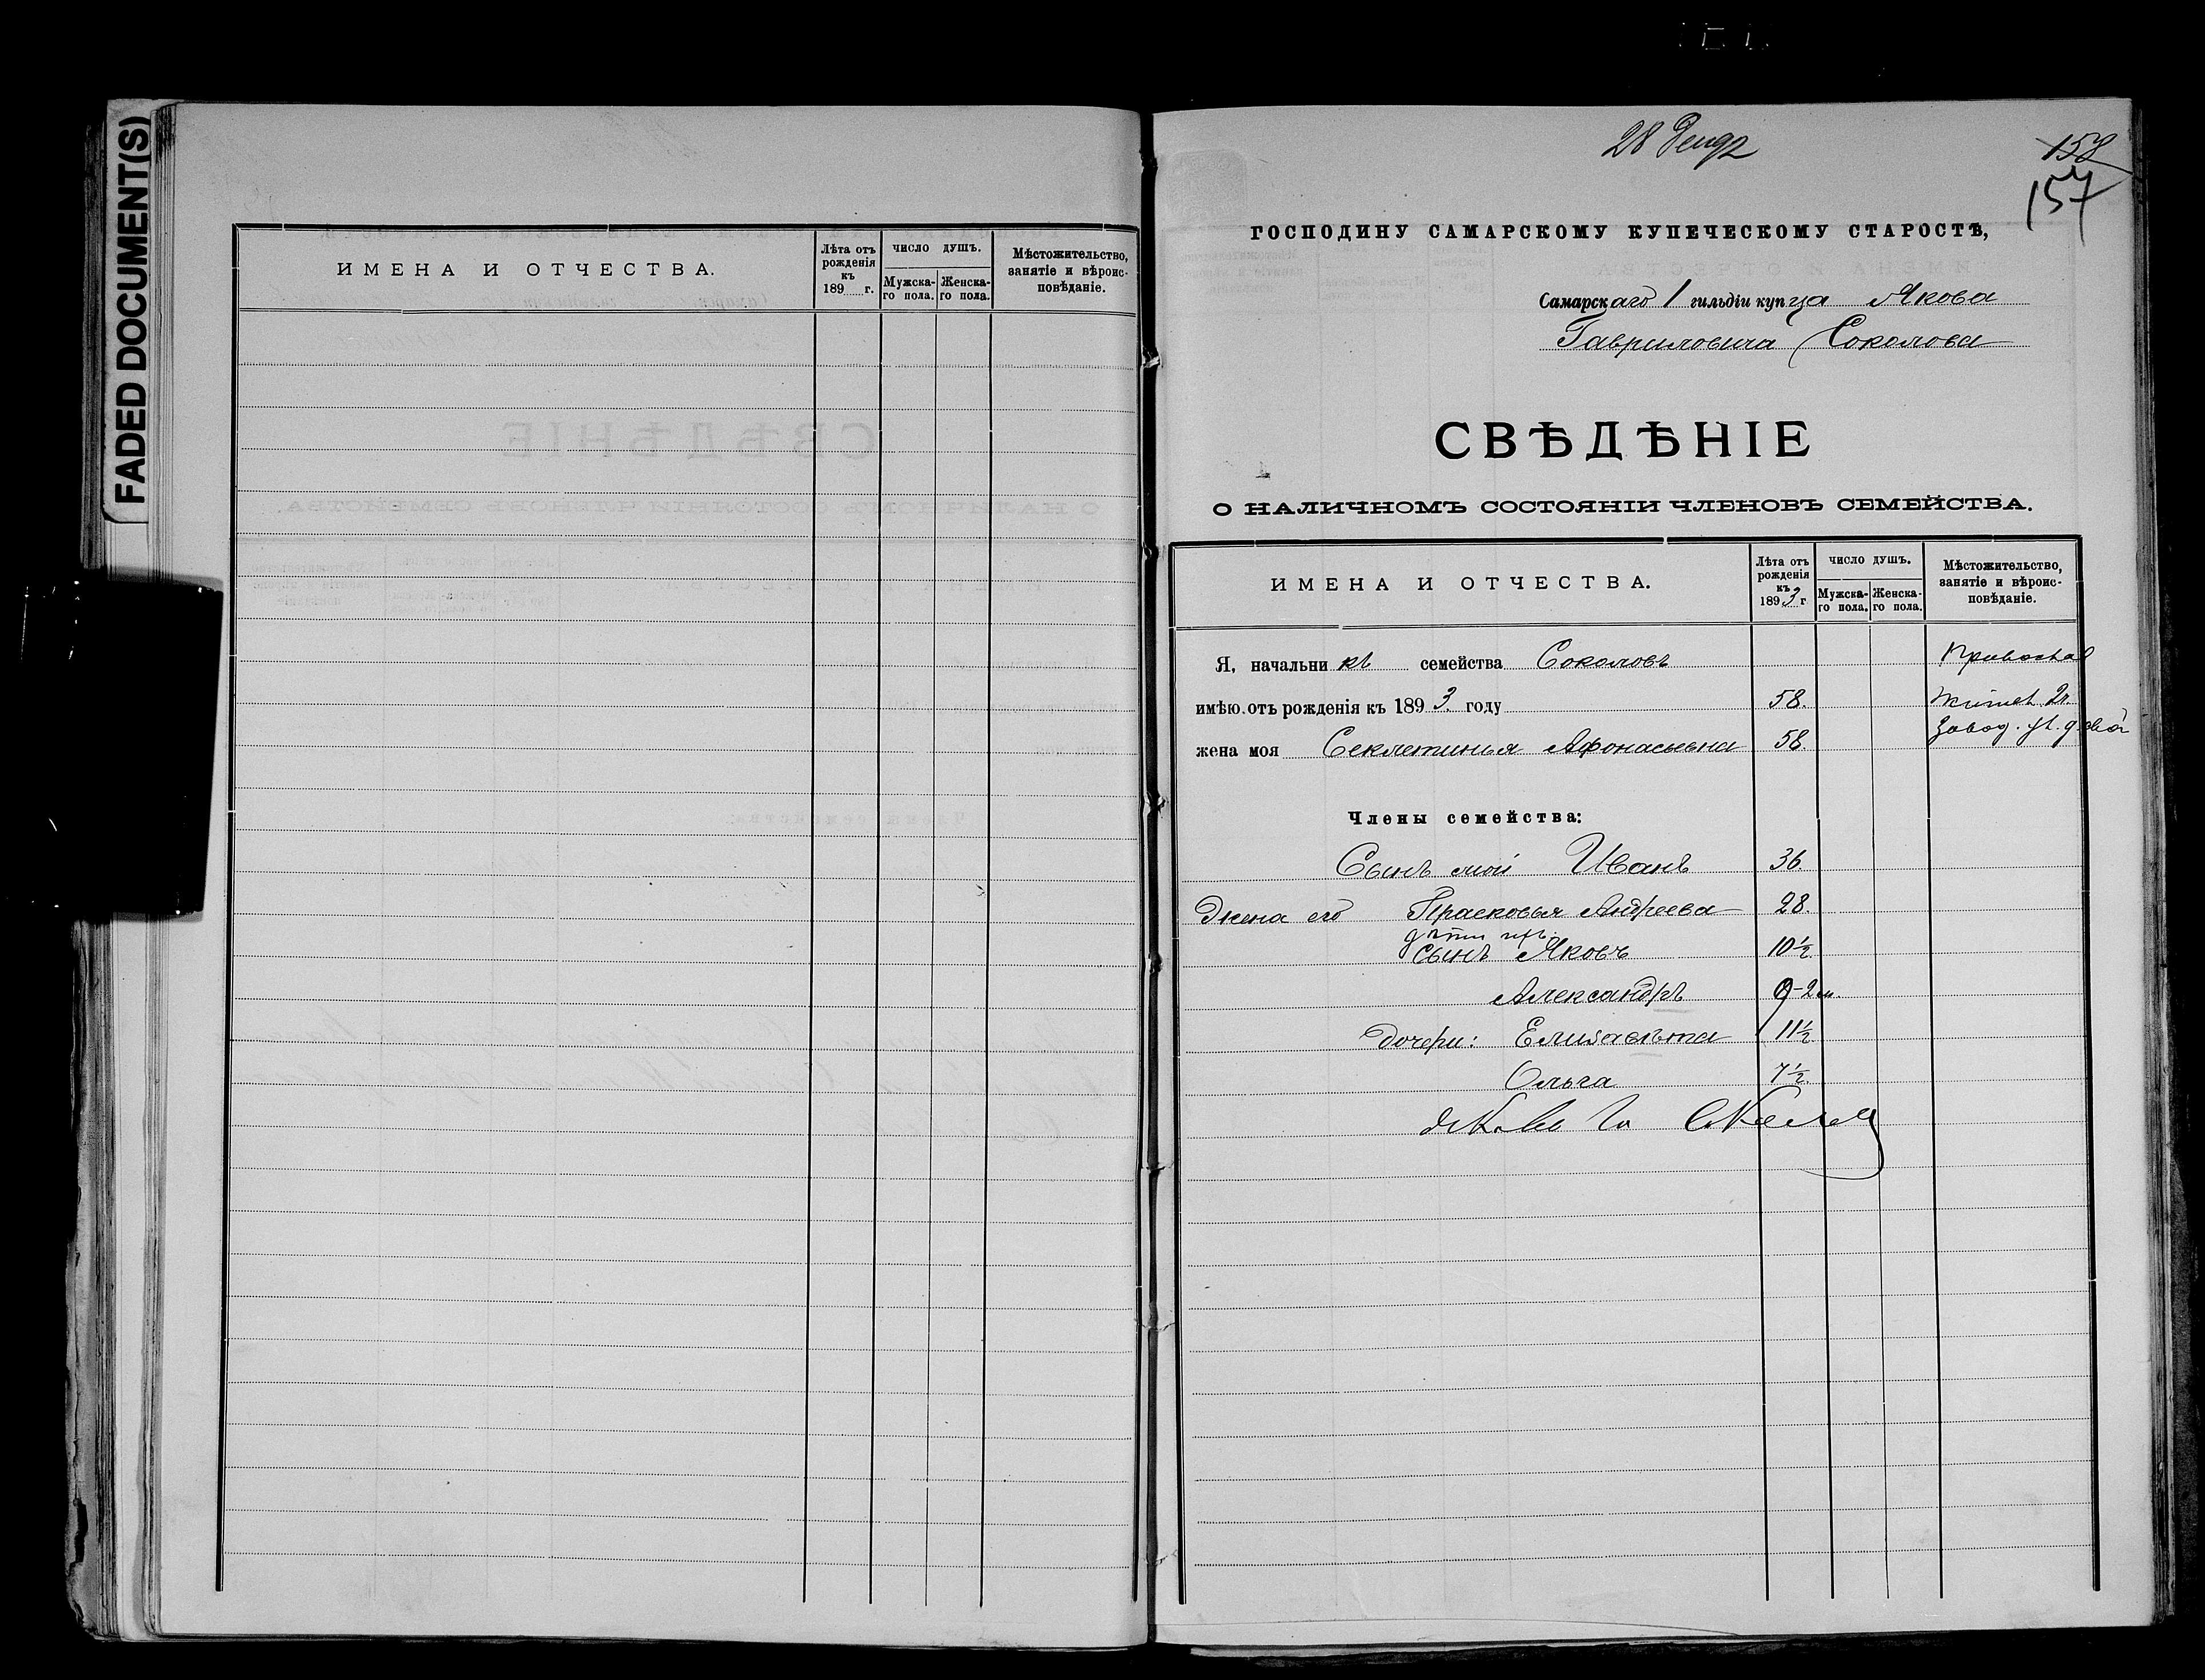 FADED DOCUMENT(S)
ИМЕНА И ОТЧЕСТВА.
Лѣта отъ рожденія къ 189 г.
ЧИСЛО ДУШЪ.
Мужска-го пола.
Женска-го пола.
Мѣстожительство, занятіе и вѣроис-повѣданіе.
28
158
157
ГОСПОДИНУ САМАРСКОМУ КУПЕЧЕСКОМУ СТАРОСТѢ,
Самарскаго 1 гильдіи купца Якова
Гавриловича Соколова
СВѢДѢНІЕ
О НАЛИЧНОМЪ СОСТОЯНІИ ЧЛЕНОВЪ СЕМЕЙСТВА.
ИМЕНА И ОТЧЕСТВА.
Лѣта отъ рожденія къ 1893 г
ЧИСЛО ДУШЪ.
Мужска-го пола.
Женска-го пола.
Мѣстожительство, занятіе и вѣроис-повѣданіе.
Я, начальникъ семейства Соколовъ
имѣю отъ рожденія къ 1893. году 58. 2ч.
жена моя Секлетинья Афонасьевна 58. Завод.
Члены семейства:
Сынъ мой Иванъ 36
Жена его Прасковья Андреева 28.
дѣти ихъ:
Сынъ Яковъ 10½
Александръ 9-2м.
Дочери: Елизавѣта 11½
Ольга 7½